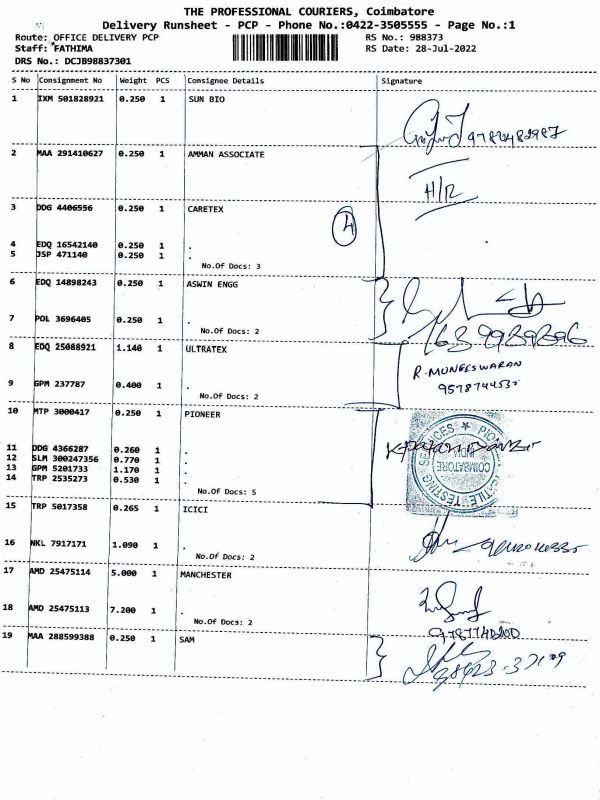 THE PROFESSIONAL COURIERS, Coimbatore
Delivery Runsheet - PCP - Phone No.:0422-3505555 - Page No.:1
Route: OFFICE DELIVERY PCP
RS No.: 988373
Staff: FATHIMA
RS Date: 28-Jul-2022
DRS No.: DCJB98837301
S No Consignment No Weight PCS Consignee Details Signature
1 IXM 501828921 0.250 1 SUN BIO
2 MAA 291410627 0.250 1 AMMAN ASSOCIATE
H/R
3 DDG 4406556 0.250 1 CARETEX
4
4 EDQ 16542140 0.250 1 .
5 JSP 471140 0.250 1 .
No.Of Docs: 3
6 EDQ 14898243 0.250 1 ASWIN ENGG
7 POL 3696405 0.250 1 .
No.Of Docs: 2
8 EDQ 25088921 1.140 1 ULTRATEX
R. MUNEESWARAN
9 GPM 237787 0.400 1 .
No.Of Docs: 2
10 MTP 3000417 0.250 1 PIONEER
11 DDG 4366287 0.260 1 .
12 SLM 300247356 0.770 1 .
13 GPM 5201733 1.170 1 .
14 TRP 2535273 0.530 1 .
No.Of Docs: 5
PIONEER TEXTILE TESTING SERVICES
COIMBATORE
INDIA
15 TRP 5017358 0.265 1 ICICI
16 NKL 7917171 1.090 1 .
No.Of Docs: 2
17 AMD 25475114 5.000 1 MANCHESTER
18 AMD 25475113 7.200 1 .
No.Of Docs: 2
19 MAA 288599388 0.250 1 SAM